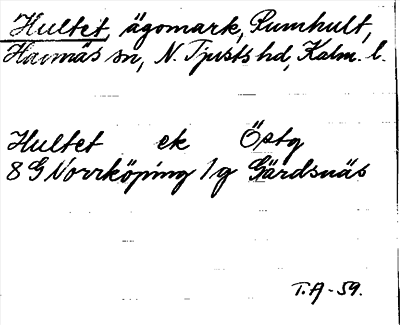 Hultet, ägomark, Pumhult,
Hannäs sn, N. Tjusts hd, Kalm. l.
Hultet ek Östg
8G Norrköping 1g Gärdsnäs
T.A-59.